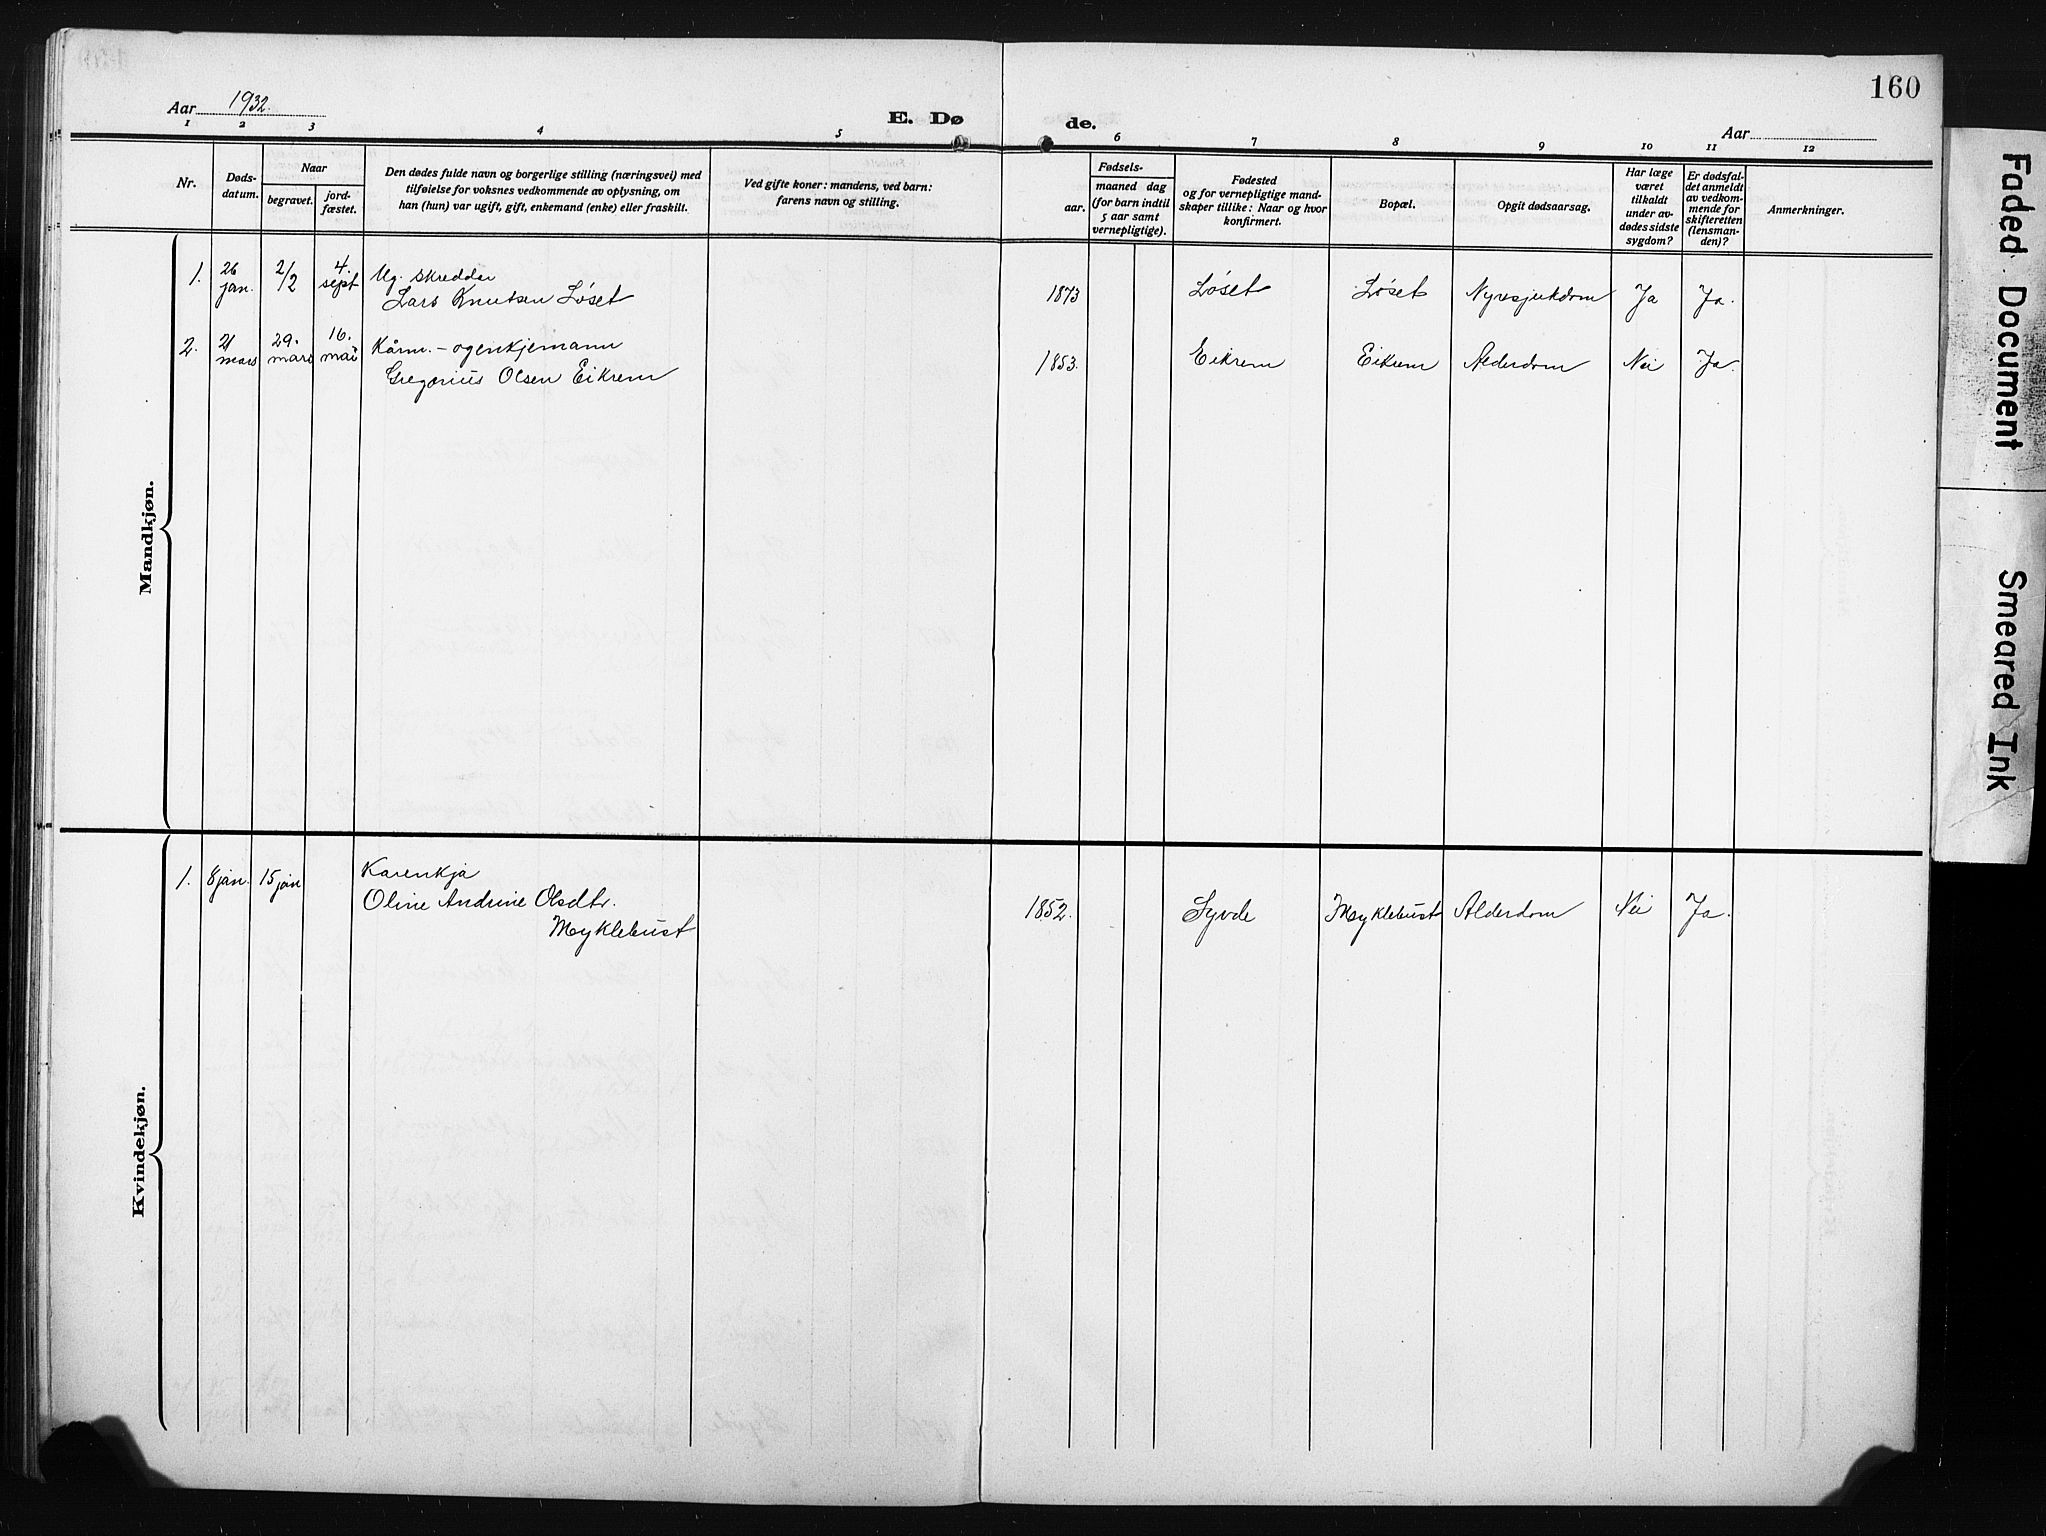 160
Aar 1932.
E. Døde.
Aar
1 2 3 4 5 6 7 8 9 10 11 12
Nr.
Døds-
datum.
Naar
begravet.
jord-
fæstet.
Den dødes fulde navn og borgerlige stilling (næringsvei) med
tilføielse for voksnes vedkommende av oplysning, om
han (hun) var ugift, gift, enkemand (enke) eller fraskilt.
Ved gifte koner: mandens, ved barn:
farens navn og stilling.
Fødsels-
aar.
maaned dag
(for barn indtil
5 aar samt
vernepligtige).
Fødested
og for vernepligtige mand-
skaper tillike: Naar og hvor
konfirmert.
Bopæl.
Opgit dødsaarsag.
Har læge
været
tilkaldt
under av-
dødes sidste
sygdom?
Er dødsfal-
det anmeldt
av vedkom-
mende for
skifteretten
(lensman-
den)?
Anmerkninger.
Mandkjøn.
1. 26 jan. 2/2 4. sept. Ug. skreddar
Lars Knutsen Løset 1873 Løset Løset Nyresjukdom Ja Ja.
2. 21 mars 29. mars 16. mai Kårm. - og enkjemann
Gregorius Olsen Eikrem 1853. Eikrem Eikrem Alderdom Nei Ja.
Kvindekjøn.
1. 8 jan. 15 jan Kårenkja
Oline Andrine Olsdtr.
Myklebust 1852. Syvde Myklebust Alderdom Nei Ja.
Faded Document
Smeared Ink